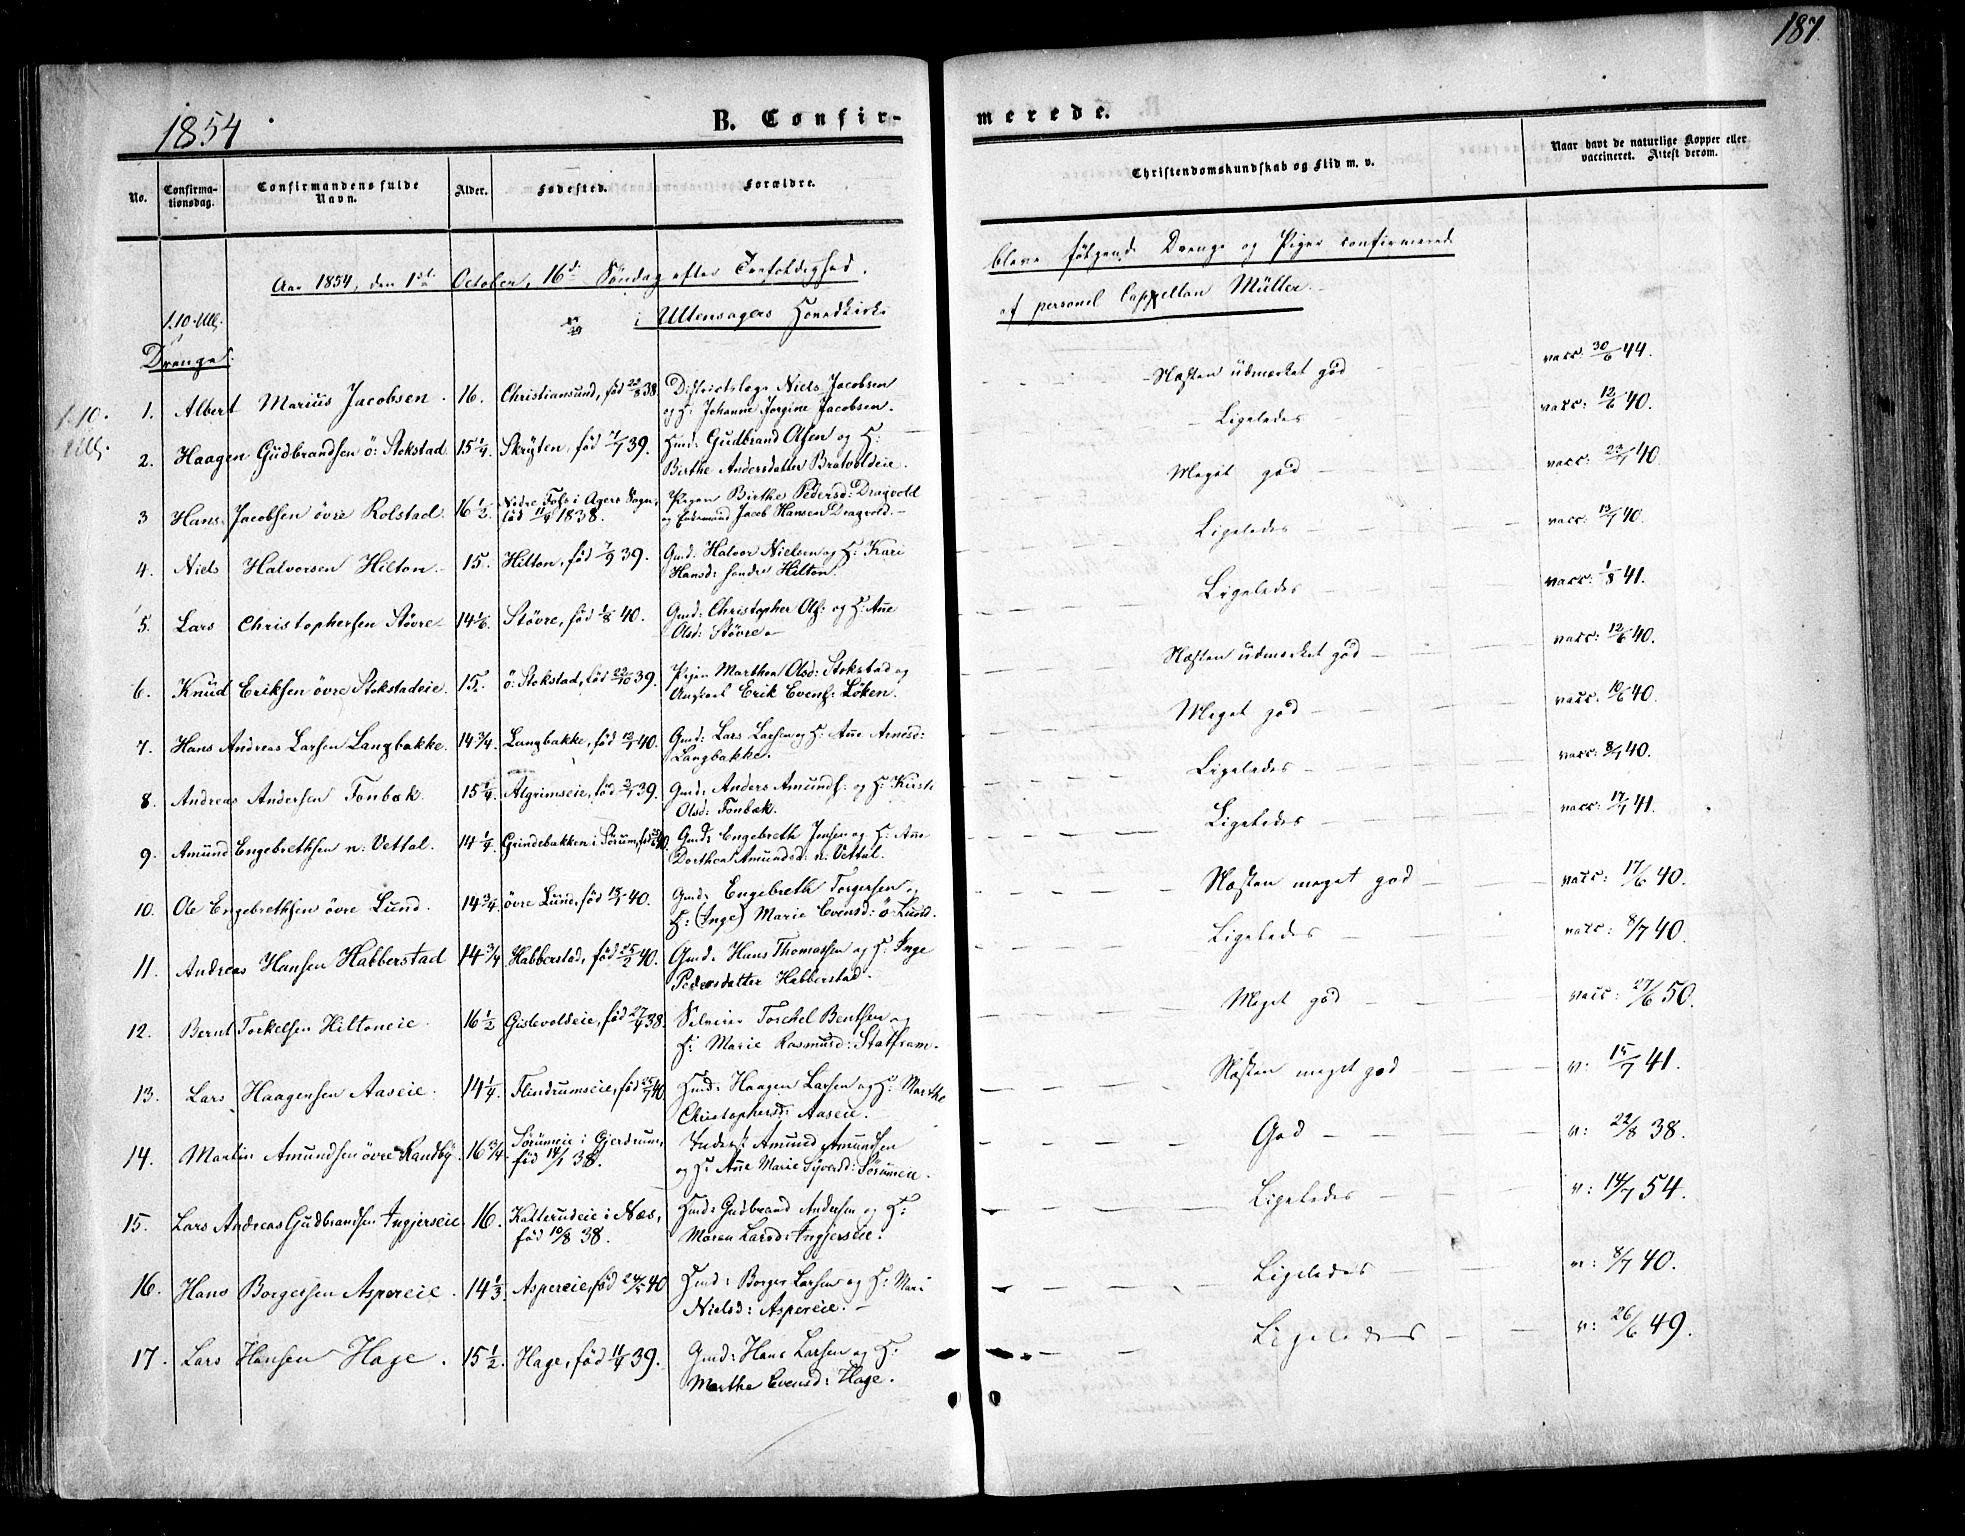 187.
1854
B. Confir-
merede.
No.
Confirma-
tionsdag.
Confirmandens fulde
Navn.
Alder.
Fødested.
Forældre.
Christendomskundskab og Flid m. v.
Naar havt de naturlige Kopper eller
vaccineret. Attest derom.
Aar 1854, den 1ste October, 16de Søndag efter Trefoldighed,
bleve følgende Drenge og Piger confirmerede
i Ullensagers Hovedkirke
af personel Cappellan Müller.
1.10. Ull.
Drenge:
1.10.
Ull.
1. Albert Marius Jacobsen. 16. Christiansund, fød 38. Districtslæge Niels Jacobsen
og H: Johanne Jorgine Jacobsen.
Næsten udmærket god vacc. 30/6 44.
2. Haagen Gudbrandsen ö: Stokstad. 15 1/4 Skryten, fød 39. Huusmd: Gudbrand Olsen og H:
Birthe Andersdatter Bratvoldeie.
Ligeledes vacc: 12/6 40.
3 Hans Jacobsen övre Rolstad. 16 1/2 i Agers Sogn,
fød 1838. Pigen Birthe Pedersd: Dragvold
og Jacob Hansen Dragvold.
Meget god vacc: 40.
4. Niels Halvorsen Hilton. 15. Hilton, fød 7/9 39. Gmd: Halvor Nielsen og H: Kari
Hansd: søndre Hilton.
Ligeledes vacc: 13/7 40.
5. Lars Christophersen Stövre 14 1/6. Stövre, fød 1/8 40. Gmd: Christopher Ols: og H: Ane
Olsd: Stövre
Ligeledes vacc: 1/8 41.
6. Knud Eriksen övre Stokstadeie. 15. ö: Stokstad, fød 22/10 39. Pigen Marthea Olsd: Stokstad og
Ungkarl Erik Evens: Löken.
Næsten udmærket god vacc: 12/6 40.
7. Hans Andreas Larsen Langbakke. 14 3/4. Langbakke, fød 12/1 40. Gmd: Lars Larsen og H: Ane Arnesd:
Langbakke.
Meget god vacc: 10/6 40.
8. Andreas Andersen Fonbæk. 15 1/4. Algrimseie, fød 39. Gmd: Anders Amunds: og H: Kirsti
Olsd: Fonbæk.
Ligeledes vacc: 8/7 40.
9. Amund Engebrethsen n: Vettal. 14 1/4 Grindebakken i Sörum, fød 40. Gmd: Engebreth Jensen og H: Ane
Dorthea Amundsd: n: Vettal.
Ligeledes vacc: 17/7 41.
10. Ole Engebrethsen övre Lund. 14 3/4. övre Lund, fød 40. Gmd: Engebreth Torgersen og
H: (Inge) Marie Evensd: ö: Lund.
Næsten meget god vacc: 17/6 40.
11. Andreas Hansen Habberstad 14 3/4 Habberstad, fød 25/2 40. Gmd: Hans Thomassen og H: Inge
Pedersdatter Habberstad.
Ligeledes vacc: 8/7 40.
12. Bernt Torkelsen Hiltoneie. 16 1/2 Gislevoldeie, fød 27/4 38. Selveier Torchel Bentsen og
H: Marie Rasmusd:
Meget god vacc: 27/6 50.
13. Lars Haagensen Aaseie. 14 1/4 Flindrumseie, fød 40. Huusmd: Haagen Larsen og H: Marthe
Christophersd: Aaseie.
Næsten meget god v: 15/7 41.
14. Martin Amundsen övre Randby. 16 3/4. Sörumeie i Gjerdrum,
fød 14/1 38. Inderst Amund Amundsen
og H: Ane Marie Syversd: Sörumeie.
God v: 22/8 38.
15. Lars Andreas Gudbrandsen Ingierseie. 16. Katterudeie i Næs,
fød 10/8 38. Huusmd: Gudbrand Andersen og H:
Maren Larsd: Ingjerseie.
Ligeledes v: 14/7 54.
16. Hans Borgersen Aspereie. 14 1/3. Aspereie, fød 24/5 40 Huusmd: Borger Larsen og H: Mari
Nielsd: Aspereie.
Ligeledes v: 8/7 40.
17. Lars Hansen Hage. 15 1/2. Hage, fød 11/4 39. Gmd: Hans Larsen og H:
Marthe Evensd: Hage.
Ligeledes v: 26/6 49.